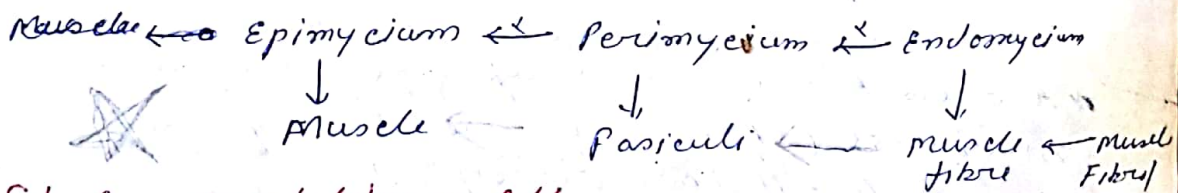 Muscle ← Epimycium ← Perimycium ← Endomycium
↓ ↓ ↓
Muscle ← Fasiculi ← Muscle fibre ← Muscle Fibril